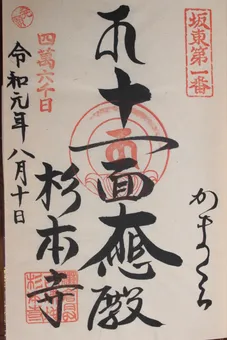 坂東第一番
かまくら
十一面大悲殿
杉本寺
四萬六千日
令和元年八月十日